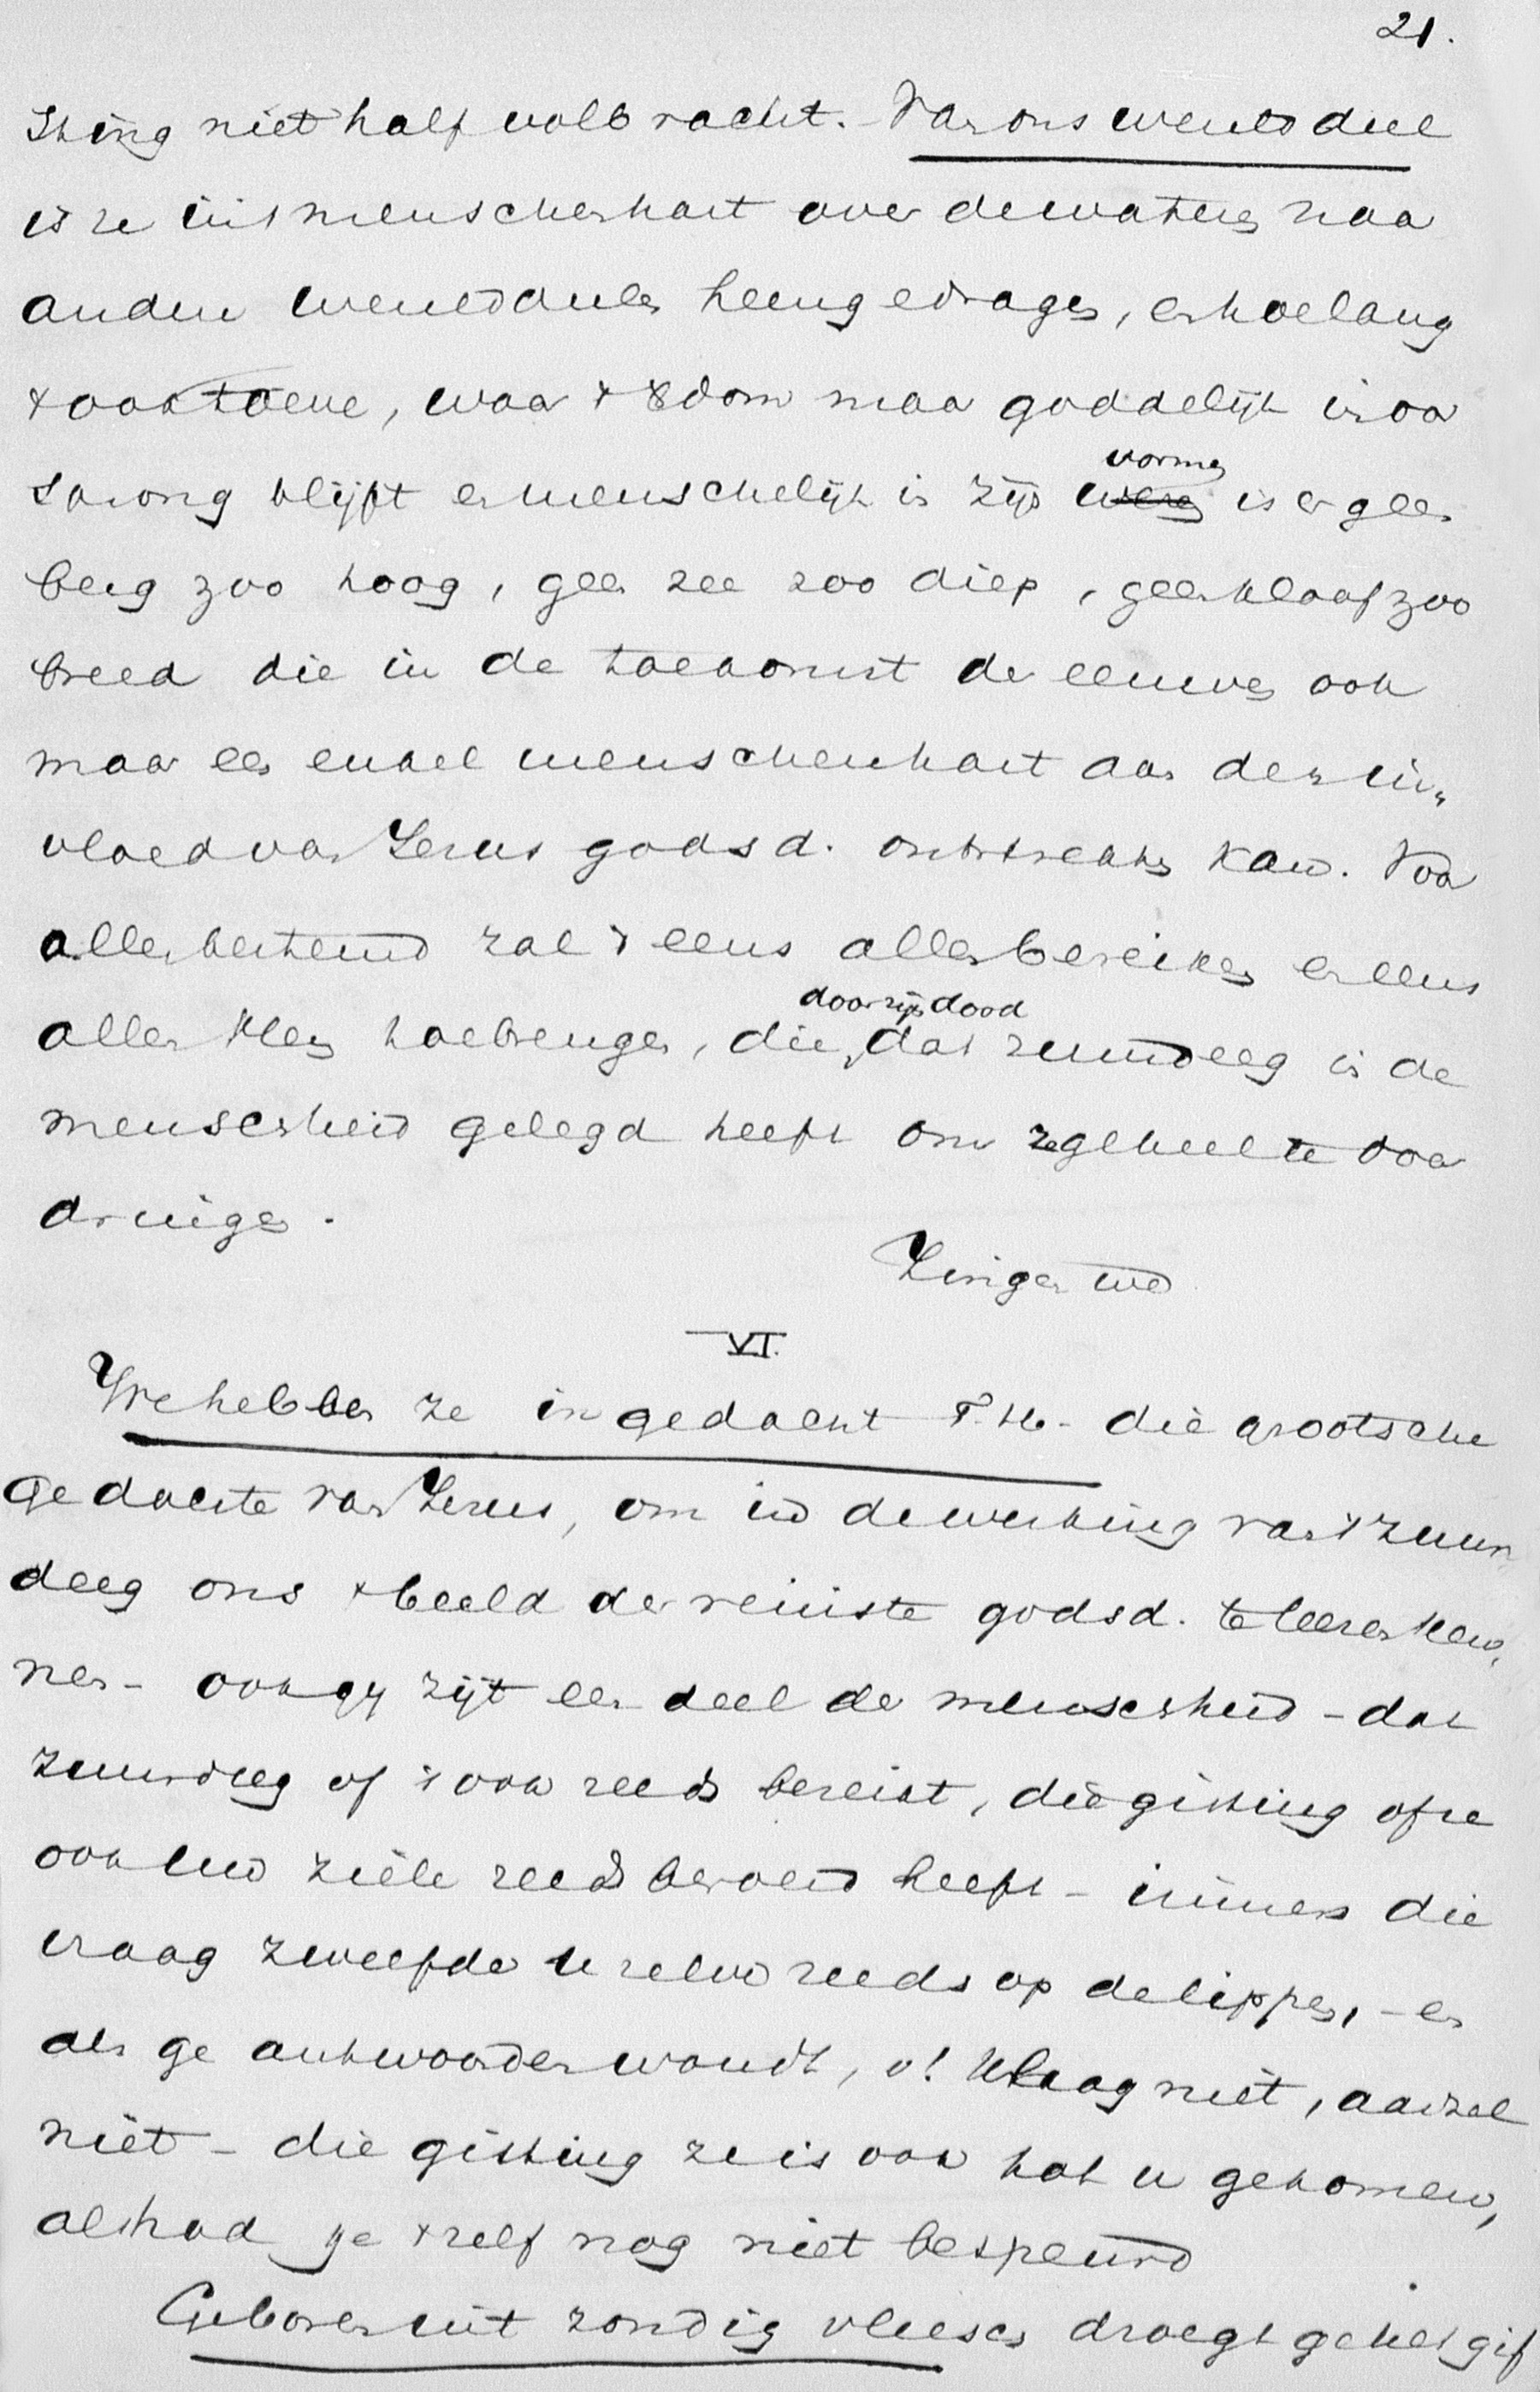 21.
sting niet half volbracht. Van ons werelddeel
is ze uit menschenhart over de wateren naar
andere werelddeelen heengedragen, en hoelang
't ook toeve, waar 't Xdom maar goddelijk in oor
sprong blijft en menschelijk in zijn vormen is er geen
berg zoo hoog, geen zee zoo diep, geen kloof zoo
breed die in de toekomst der eeuwen ook
maar een enkel menschenhart aan den in„
vloed van Jezus godsd. onttrekken kan. Voor
allen bestemd zal 't eens allen bereiken en eens
allen Hem toebrengen, die door zijn dood dat zuurdeeg in de
menschheid gelegd heeft om ze geheel te door
dringen.
Zingen wed
VI.
We hebben ze ingedacht T. H. - die grootsche
gedachte van Jezus, om in de werking van 't zuur
deeg ons 't beeld der reinste godsd. te leeren ken„
nen - ook gij zijt een deel der menschheid - dat
zuurdeeg of 't ook reeds bereikt, die gisting of ze
ook uw ziele reeds beroerd heeft - immers die
vraag zweefde u zelve reeds op de lippen, - en
als ge antwoorden woudt, o! klaag niet, aarzel
niet - die gisting ze is ook tot u gekomen,
al had ge 't zelf nog niet bespeurd
Geboren uit zondig vleesch draagt ge het gif